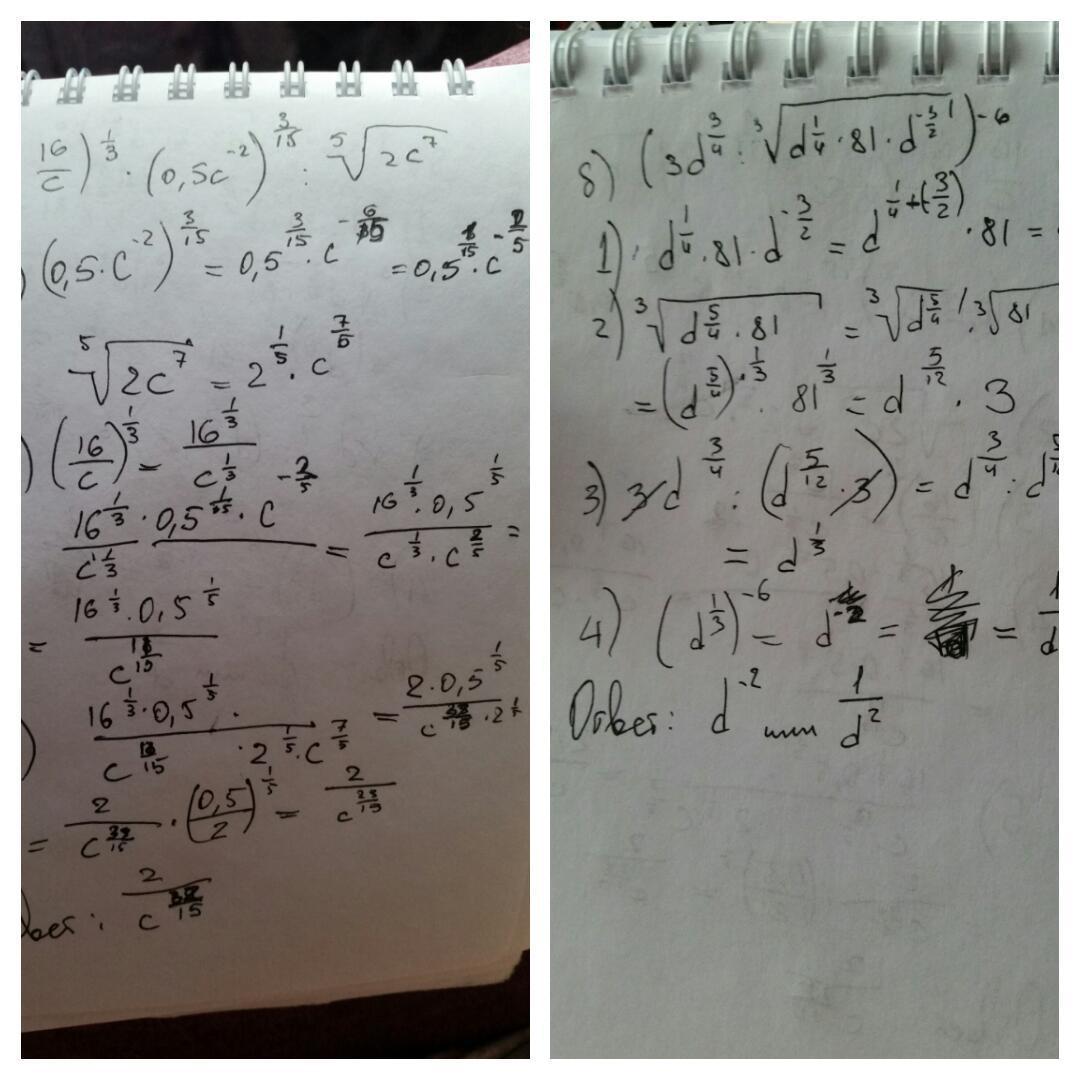 16/c)^(1/3) · (0,5c^(-2))^(3/15) : ⁵√(2c^7)
) (0,5·c^(-2))^(3/15) = 0,5^(3/15) · c^(-6/15) = 0,5^(1/15) · c^(-2/5)
⁵√(2c^7) = 2^(1/5) · c^(7/5)
) (16/c)^(1/3) = 16^(1/3)/c^(1/3)
16^(1/3)/c^(1/3) · 0,5^(1/15) · c^(-2/5) = 16^(1/3) · 0,5^(1/5)/c^(1/3) · c^(2/5) =
= 16^(1/3) · 0,5^(1/5)/c
) 16^(1/3) · 0,5^(1/5) · /c · 2^(1/5) · c^(7/5) = 2 · 0,5^(1/5)/c · 2
= 2/c · (0,5/2)^(1/5) = 2/c
: 2/c
б) (3d^(3/4) : ³√(d^(1/4) · 81 · d^(-3/2)))^(-6)
1) d^(1/4) · 81 · d^(-3/2) = d^(1/4+(-3/2)) · 81 =
2) ³√(d^(5/4) · 81) = ³√(d^(5/4)) · ³√81
= (d^(5/4))^(·1/3) · 81^(1/3) = d^(5/12) · 3
3) 3d^(3/4) : (d^(5/12) · 3) = d^(3/4) : d
= d^(1/3)
4) (d^(1/3))^(-6) = d^(-2) = = 1/d
Ответ: d^(-2) или 1/d^2